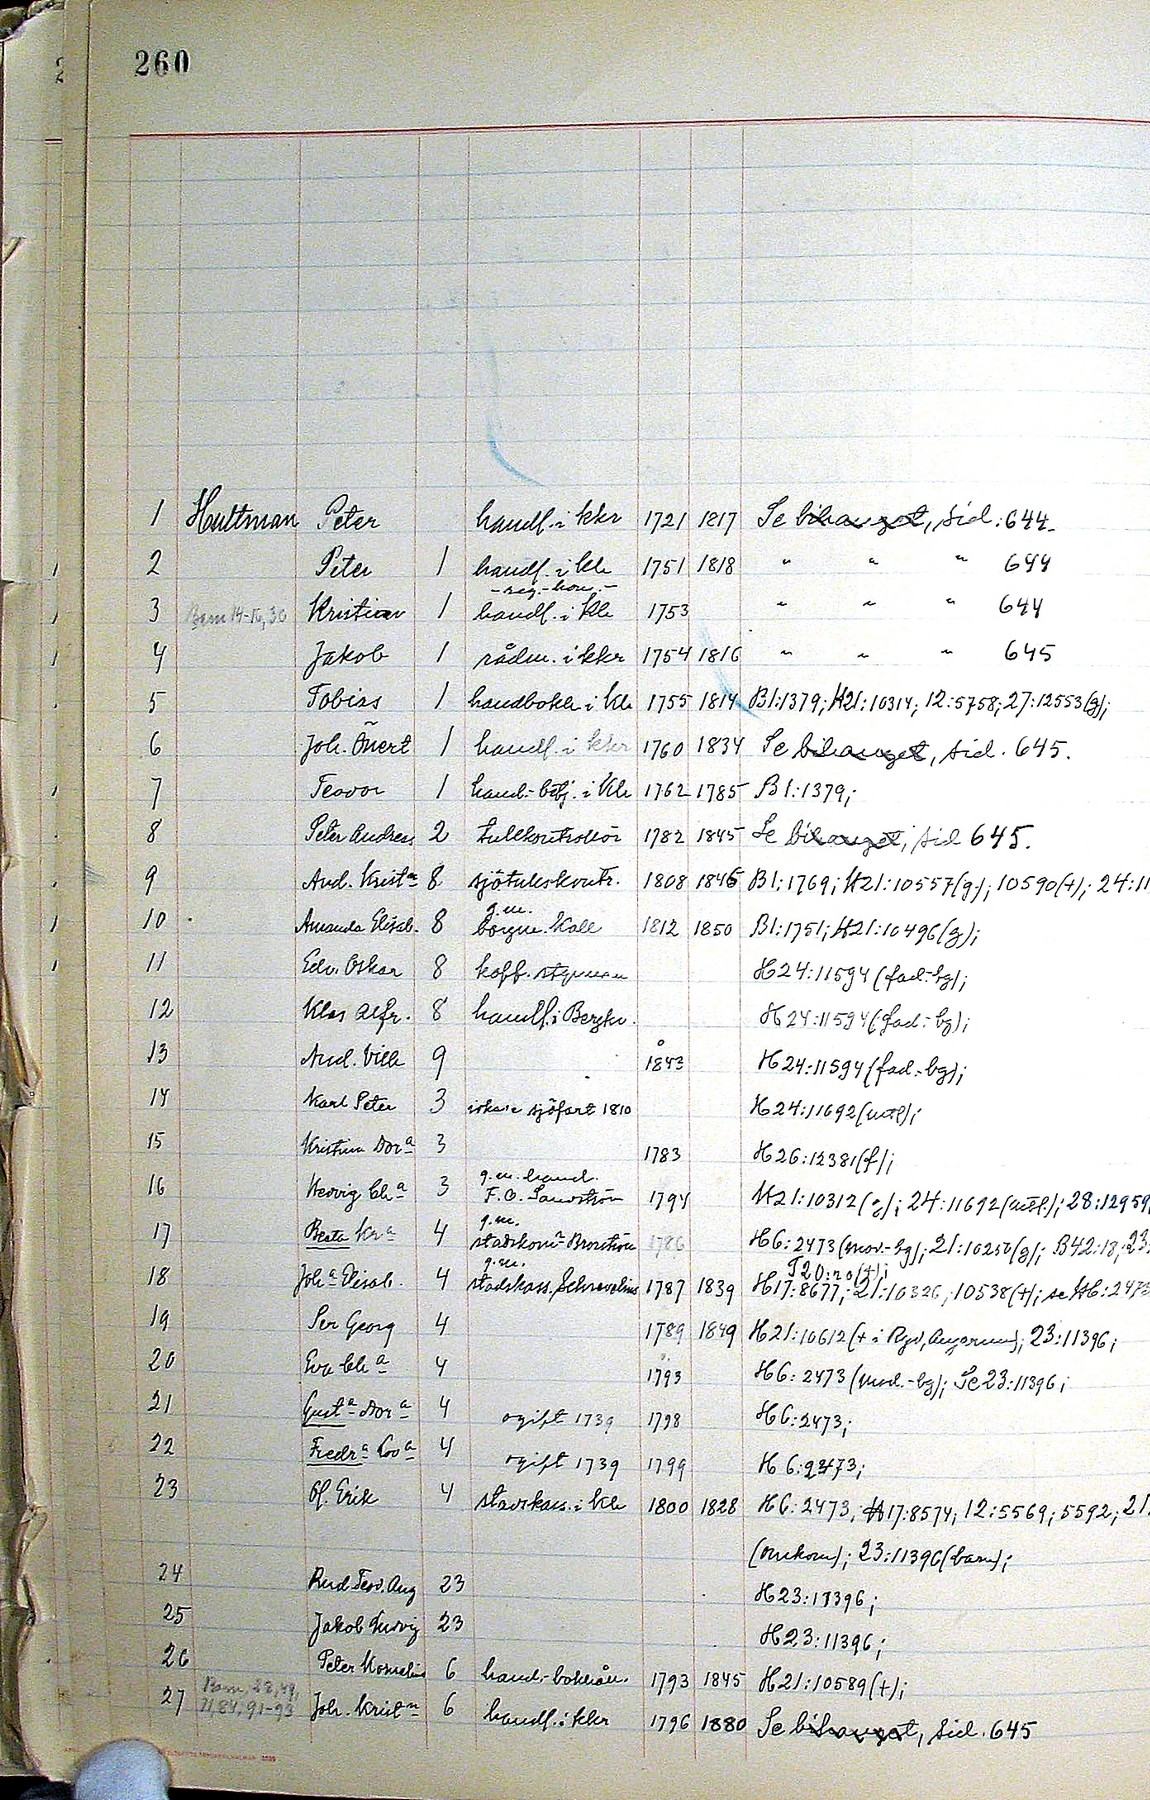 260
1 Hultman Peter handl. i kkr 1721 1817 Se bihanget, sid. 644.
2 Peter 1 handl. i kle 1751 1818 " " " 644
3 Barn 14-16, 30 Kristian 1 handl. i kle 1753 " " " 644
4 Jakob 1 rådm. i kkr 1754 1816 " " " 645
5 Tobias 1 handbokh i kle 1755 1814 B1:1379; H21:10314; 12:5758; 27:12553(g);
6 Joh. Evert 1 handl. i kkr 1760 1834 Se bihanget, sid. 645.
7 Teodor 1 hand.-betj. i kle 1762 1785 B1:1379;
8 Peter Andreas 2 tullkontrollör 1782 1845 Se bihanget, sid 645.
9 And. Krist.ⁿ 8 sjötullskontr. 1808 1846 B1:1769; H21:10557(g); 10590(+); 24:11
g.m.
10 Amanda Elisab. 8 borgm. Kall 1812 1850 B1:1751; H21:10496(g);
11 Edv. Oskar 8 koff. styrman H24:11594 (fad.-bg);
12 Klas Alfr. 8 handl. i Bergkv. H24:11594 (fad.-bg);
13 And. Vilh 9 1843 H24:11594 (fad.-bg);
14 Karl Peter 3 idkade sjöfart 1810 H24:11692(utfl);
15 Kristina Dor.ᵃ 3 1783 H26:12381(f);
g.m. hand.
16 Hedvig Ch.ᵃ 3 F.O. Sandström 1794 H21:10312(g); 24:11692(utfl.); 28:12959
g.m.
17 Beata Kr.ᵃ 4 stadskom.ʳ Broström 1786 H6:2473(mod.-bg); 21:10250(g); B42:18; 23:
g.m. T20:20(+);
18 Joh.ᵃ Elisab. 4 stadskass. Schrevelius 1787 1839 H17:8677; 21:10326, 10538(+); se H6:2473
19 Per Georg 4 1789 1849 H21:10612(+ i Ryd, Augerum); 23:11396;
20 Eva Ch.ᵃ 4 1793 H6:2473 (mod.-bg); Se 23:11396;
21 Gust.ᵃ Dor.ᵃ 4 ogift 1739 1798 H6:2473;
22 Fredr.ᵃ Lov.ᵃ 4 ogift 1739 1799 H6:2473;
23 Ol. Erik 4 stadskass. i kle 1800 1828 H6:2473, H17:8574; 12:5569; 5592; 21.
(omkom); 23:11396(barn);
24 Rud. Teod. Aug 23 H23:11396;
25 Jakob Ludvig 23 H23:11396;
26 Peter Kornelius 6 hand.-bokhåll. 1793 1845 H21:10589(+);
27 Barn, 28, 49, 71, 84, 91-93 Joh. Krist.ⁿ 6 handl. i kkr 1796 1880 Se bihanget, sid. 645